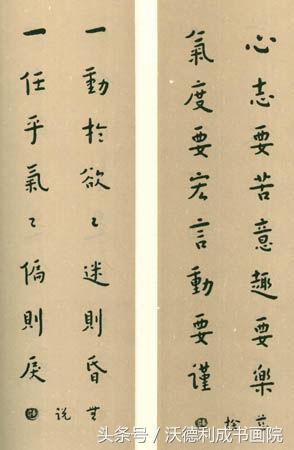 心志要苦意趣要樂
氣度要宏言動要謹
一動於欲々迷則昏
一任乎氣々偏則戾
头条号／沃德利成书画院